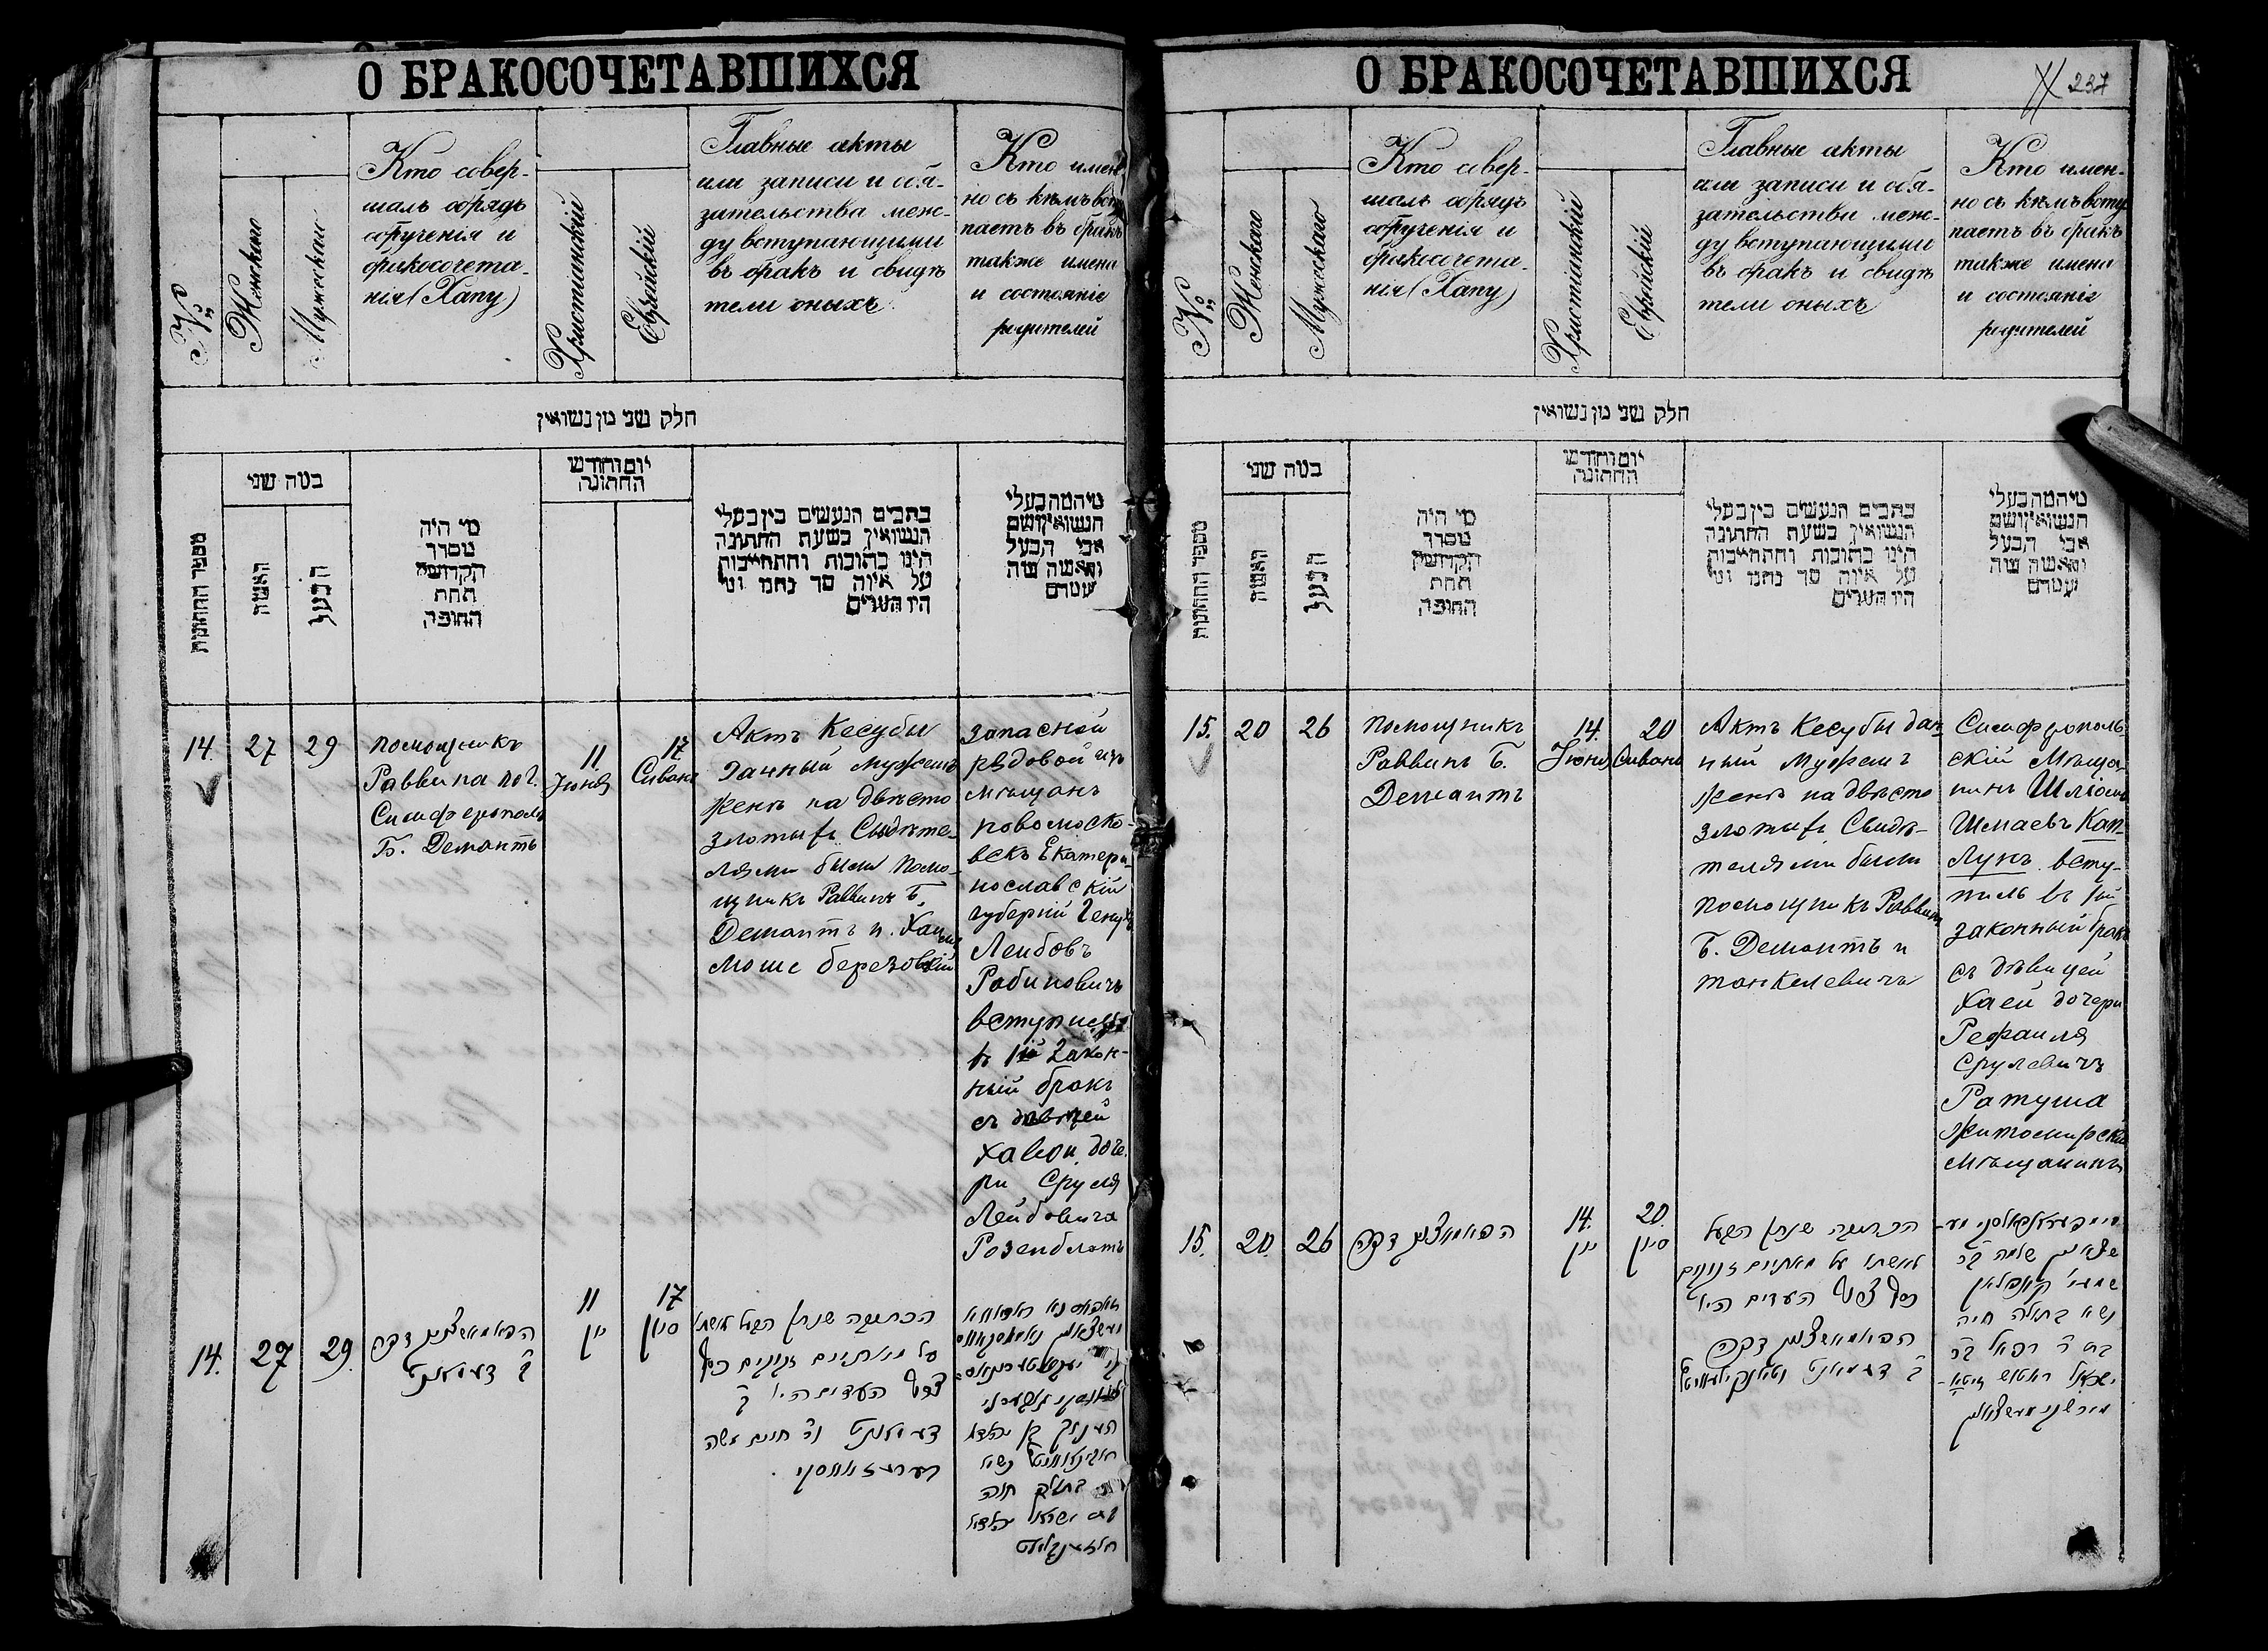 О БРАКОСОЧЕТАВШИХСЯ
№
Женскаго
Мужескаго
Кто совер-
шалъ обрядъ
обрученія и
бракосочета-
нія (Хапу)
Христіанскій
Еврейскій
Главные акты
или записи и обя-
зательства меж-
ду вступающими
въ бракъ и свидѣ
тели оныхъ
Кто имен
но съ кѣмъ всту
паетъ въ бракъ
также имена
и состояніе
родителей
חלק שני מן נשואין
מספר החתונות
במה שני
האשה
הבעל
מי היה
מסדר
הקדושין
תחת
החופה
יום וחודש
החתונה
כתבים הנעשים בין בעלי
הנשואין בשעת החתונה
היינו כתובות והתחייבות
על איזה סך נחמו ומי
היו העדים
מי המה בעלי
הנשואין ושם
אבי הבעל
והאשה ומה
מעמדם
14. 27 29
помощникъ
Раввина по г.
Симферополь
Б. Демантъ
11
Іюня
17
Сивана
Актъ Кесубы
данный мужемъ
женѣ на двѣсто
злотыхъ Свидѣте-
лями были помо-
щникъ Раввинъ Б.
Демантъ и. Хаимъ
Моше березовскій
запасной
рядовой изъ
мѣщанъ
новомоско-
вскъ Екатери-
нославскій
губерній Генухъ
Леибовъ
Рабиновичъ
вступилъ
въ 1й закон-
ный бракъ
съ дѣвицей
Хавои доче-
ри Сруля
Лейбовича
Розенблатъ
14. 27 29.
ב׳ דעמאנט
11
יון
17
סיון
הכתובה שנתן הבעל לאשתו
על מאתיים זהובים כסף
העדים היו ב׳
דעמאנט ור׳ חיים משה
בערעזאווסקי.
ראבינאוויטץ נשא
בתולה חוה
בת ישראל
ראזענבלאט
О БРАКОСОЧЕТАВШИХСЯ
237
№
Женскаго
Мужескаго
Кто совер-
шалъ обрядъ
обрученія и
бракосочета-
нія (Хапу)
Христіанскій
Еврейскій
Главные акты
или записи и обя-
зательства меж-
ду вступающими
въ бракъ и свидѣ
тели оныхъ
Кто имен-
но съ кѣмъ всту
паетъ въ бракъ
также имена
и состояніе
родителей
חלק שני מן נשואין
מספר החתונות
במה שני
האשה
הבעל
מי היה
מסדר
הקדושין
תחת
החופה
יום וחודש
החתונה
כתבים הנעשים בין בעלי
הנשואין בשעת החתונה
היינו כתובות והתחייבות
על איזה סך נחמו ומי
היו העדים
מי המה בעלי
הנשואין ושם
אבי הבעל
והאשה ומה
מעמדם
15. 20 26
помощникъ
Раввинъ Б.
Демантъ
14.
Іюня
20
Сивана
Актъ Кесубы дан-
ный мужемъ
женѣ на двѣсто
злотыхъ Свидѣ-
телями были
помощникъ Раввинъ
Б. Демантъ и
танкелевичъ
Симферополь-
скій Мѣща-
нинъ Шліома
Шмаевъ Кап-
лунъ всту-
пилъ въ 1й
законный бракъ
съ дѣвицей
Хаей дочери
Рефаиля
Срулевичъ
Ратуша
Житомирскій
мѣщанинъ
15. 20. 26
14.
יון
20.
סיון
הכתובה שנתן הבעל
לאשתו על מאתיים זהובים
העדים היו
ב׳ דעמאנט
שלמה בר
שמעי׳ קאפלאן
נשא בתולה חיה
בת ר׳ רפאל בר
ישראל ראטוש